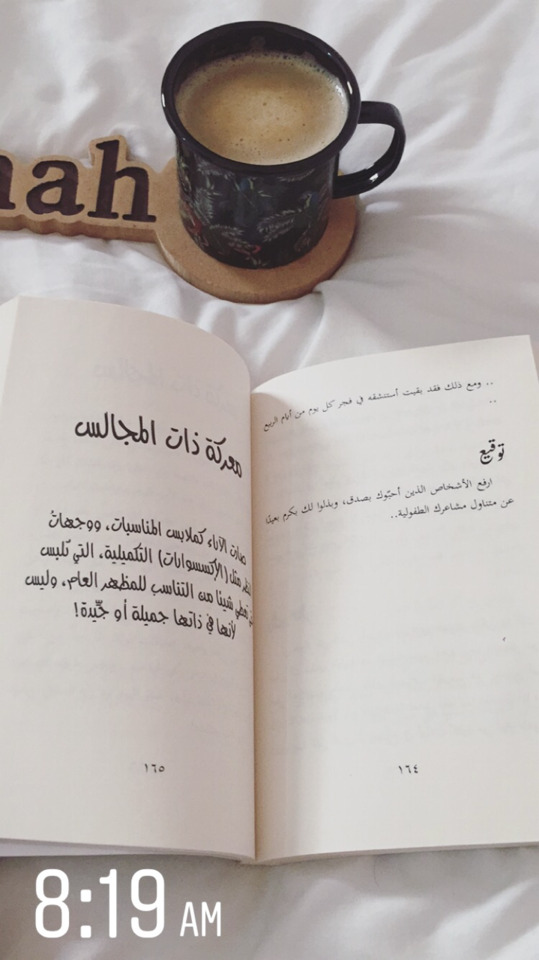 nah
.. ومع ذلك فقد بقيت أستنشقه في فجر كل يوم من أيام الربيع
..
توقيع
ارفع الأشخاص الذين أحبّوك بصدق، وبذلوا لك بكرم بعيدًا
عن متناول مشاعرك الطفولية..
١٦٤
معركة ذات المجالس
صارت الآراء كملابس المناسبات، ووجهات
النظر مثل (الإكسسوارات) التكميلية، التي تُلبس
تعطي شيئا من التناسب للمظهر العام، وليس
لأنها في ذاتها جميلة أو جيّدة!
١٦٥
8:19 AM